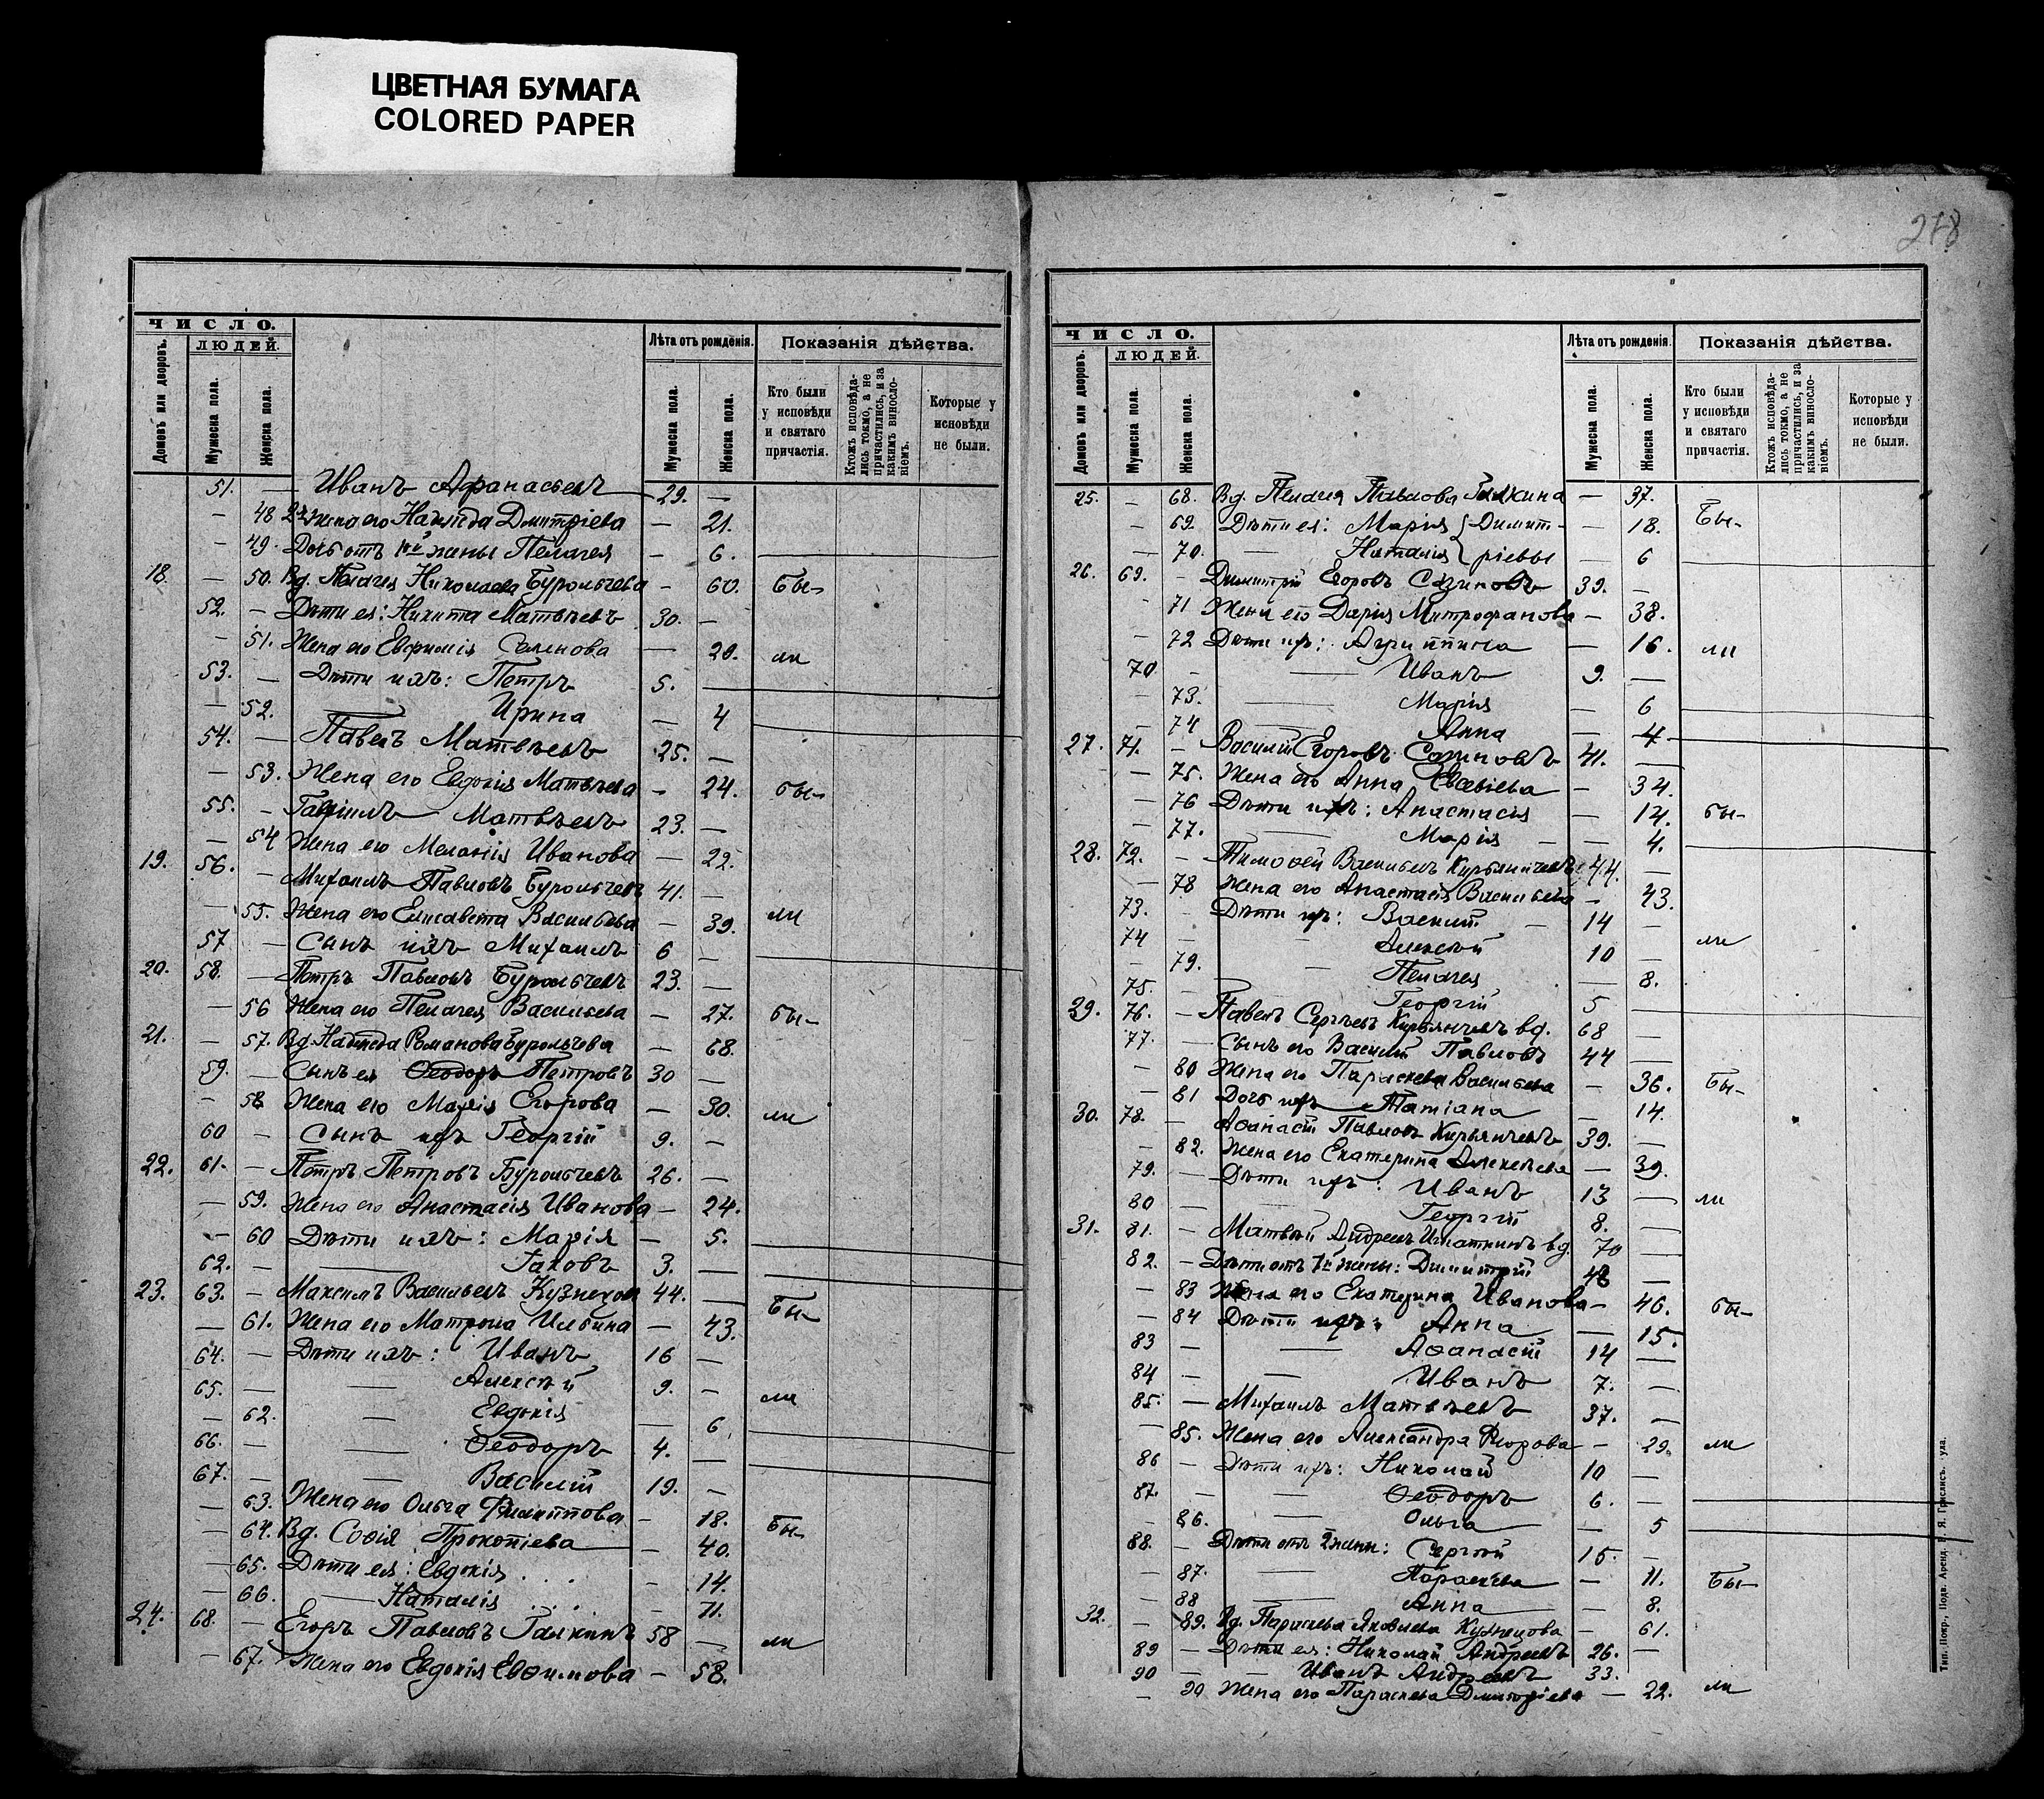 ЦВЕТНАЯ БУМАГА
COLORED PAPER
ЧИСЛО.
ЛЮДЕЙ.
Домовъ или дворовъ.
Мужеска пола.
Женска пола.
Лѣта отъ рожденія.
Мужеска пола.
Женска пола.
Показанія дѣйства.
Кто были у исповѣди и святаго причастія.
Ктожъ исповѣдались токмо, а не причастились, и за какимъ винословіемъ.
Которые у исповѣди не были.
51. — Иванъ Афанасьевъ 29. —
— 48 2я жена его Надежда Димитріева — 21.
— 49. Дочь отъ 1ой жены Пелагея — 6.
18. — 50. Вд. Пелагея Николаева Бурольчева — 60. Бы-
52. — Дѣти ея: Никита Матвѣевъ 30. —
— 51. Жена его Евфимія Семенова — 20. ли
53. — Дѣти ихъ: Петръ 5. —
— 52. — Ирина — 4
54. — Павелъ Матвѣевъ 25. —
— 53. Жена его Евдокія Матвѣева — 24. бы-
55. — Гавріилъ Матвѣевъ 23. —
— 54 Жена его Меланія Иванова — 22.
19. 56. — Михаилъ Павловъ Бурольчевъ 41. —
— 55. Жена его Елисавета Васильева — 39. ли
57 — Сынъ ихъ Михаилъ 6 —
20. 58. — Петръ Павловъ Бурольчевъ 23. —
— 56 Жена его Пелагея Васильева — 27. бы-
21. — 57. Вд. Надежда Романова Бурольчева — 68.
59. — Сынъ ея Ѳеодоръ Петровъ 30 —
— 58 Жена его Марія Егорова — 30. ли
60 — Сынъ ихъ Георгій 9. —
22. 61. — Петръ Петровъ Бурольчевъ 26. —
— 59. Жена его Анастасія Иванова — 24.
— 60 Дѣти ихъ: Марія — 5.
62. — — Іаковъ 3. —
23. 63. — Максимъ Васильевъ Кузнецовъ 44. — Бы-
— 61. Жена его Матрона Ильина — 43.
64. — Дѣти ихъ: Иванъ 16 —
65. — — Алексѣй 9. — ли
— 62. — Евдокія — 6
66. — — Ѳеодоръ 4. —
67. — — Василій 19. —
— 63. Жена его Ольга Филиппова — 18. Бы-
— 64. Вд. Софія Прокопіева — 40.
— 65. Дѣти ея: Евдокія — 14.
— 66. — Наталія — 11.
24. 68. — Егоръ Павловъ Галкинъ 58 — ли
— 67. Жена его Евдокія Евѳимова — 58.
278
ЧИСЛО.
ЛЮДЕЙ.
Домовъ или дворовъ.
Мужеска пола.
Женска пола.
Лѣта отъ рожденія.
Мужеска пола.
Женска пола.
Показанія дѣйства.
Кто были у исповѣди и святаго причастія.
Ктожъ исповѣдались токмо, а не причастились, и за какимъ винословіемъ.
Которые у исповѣди не были.
25. — 68. Вд. Пелагея Павлова Галкина — 37. Бы-
— 69. Дѣти ея: Марія } Димит- — 18.
— 70. — Наталія } ріевы — 6
26. 69. — Димитрій Егоровъ Сазиновъ 39. —
— 71 Жена его Дарія Митрофанова — 38.
— 72 Дѣти ихъ: Агриппина — 16. ли
70 — — Иванъ 9. —
— 73. — Марія — 6
— 74 — Анна — 4
27. 71. — Василій Егоровъ Сазиновъ 41. —
— 75. Жена его Анна Евсевіева — 34.
— 76 Дѣти ихъ: Анастасія — 14. бы-
— 77. — Марія — 4.
28. 72. — Тимоѳей Васильевъ Кирьяничевъ 44. —
— 78 Жена его Анастасія Васильева — 43.
73. — Дѣти ихъ: Василій 14 —
74 — — Алексѣй 10 — ли
— 79. — Пелагея — 8.
75. — — Георгій 5 —
29. 76. — Павелъ Сергѣевъ Кирьяничевъ вд. 68 —
77. — Сынъ его Василій Павловъ 44 —
— 80 Жена его Параскева Васильева — 36. Бы-
— 81 Дочь ихъ Татіана — 14.
30. 78. — Аѳанасій Павловъ Кирьяничевъ 39. —
— 82. Жена его Екатерина Алексѣева — 39.
79. — Дѣти ихъ: Иванъ 13 — ли
80 — — Георгій 8. —
31. 81. — Матвѣй Андреевъ Игнаткинъ вд. 70 —
82. — Дѣти отъ 1й жены: Димитрій 48 —
— 83 Жена его Екатерина Иванова — 46. бы-
— 84 Дѣти ихъ: Анна — 15.
83 — — Аѳанасій 14 —
84 — — Иванъ 7. —
85. — Михаилъ Матвѣевъ 37. —
— 85. Жена его Александра Егорова — 29. ли
86 — Дѣти ихъ: Николай 10 —
87. — — Ѳеодоръ 6. —
— 86. — Ольга — 5
88. — Дѣти отъ 2 жены: Сергѣй 15. —
— 87. — Параскева — 11. Бы-
— 88 — Анна — 8.
32. — 89. Вд. Параскева Яковлева Кузнецова — 61.
89 — Дѣти ея: Николай Андреевъ 26. —
90 — — Иванъ Андреевъ 33.
— 90 Жена его Параскева Димитріева — 22. ли
Тип. Покр., Подв. Аренд. Г. Я. Грислисъ. ула.